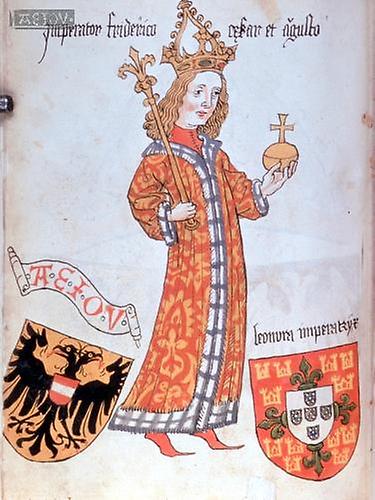 Imperator friderico cesar et agusto
A·E·I·O·V·
A·E·I·O·V·
leonora imperatrix